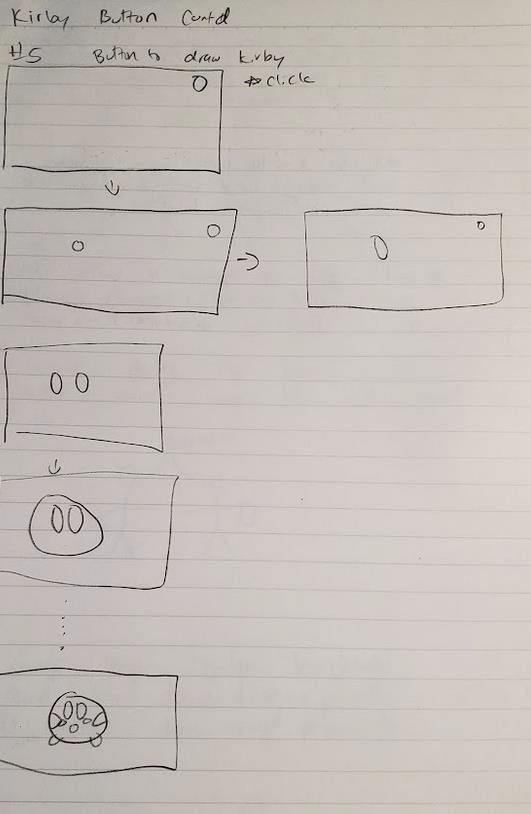 Kirby Button Contd
#5 Button to draw Kirby
click